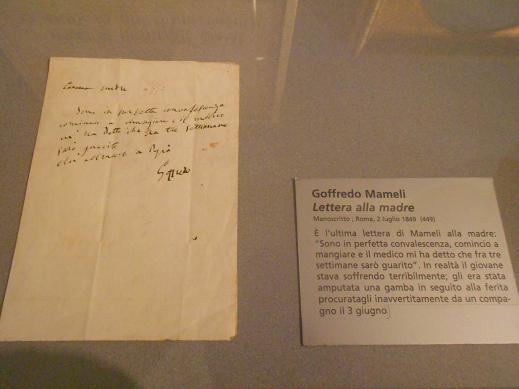 Carissima madre
Sono in perfetta convalescenza
comincio a mangiare e il medico
mi ha detto che fra tre settimane
sarò guarito
Goffredo
Goffredo Mameli
Lettera alla madre
Manoscritto ; Roma, 2 luglio 1849 (449)
È l'ultima lettera di Mameli alla madre:
"Sono in perfetta convalescenza, comincio a
mangiare e il medico mi ha detto che fra tre
settimane sarò guarito". In realtà il giovane
stava soffrendo terribilmente; gli era stata
amputata una gamba in seguito alla ferita
procuratagli inavvertitamente da un compa-
gno il 3 giugno